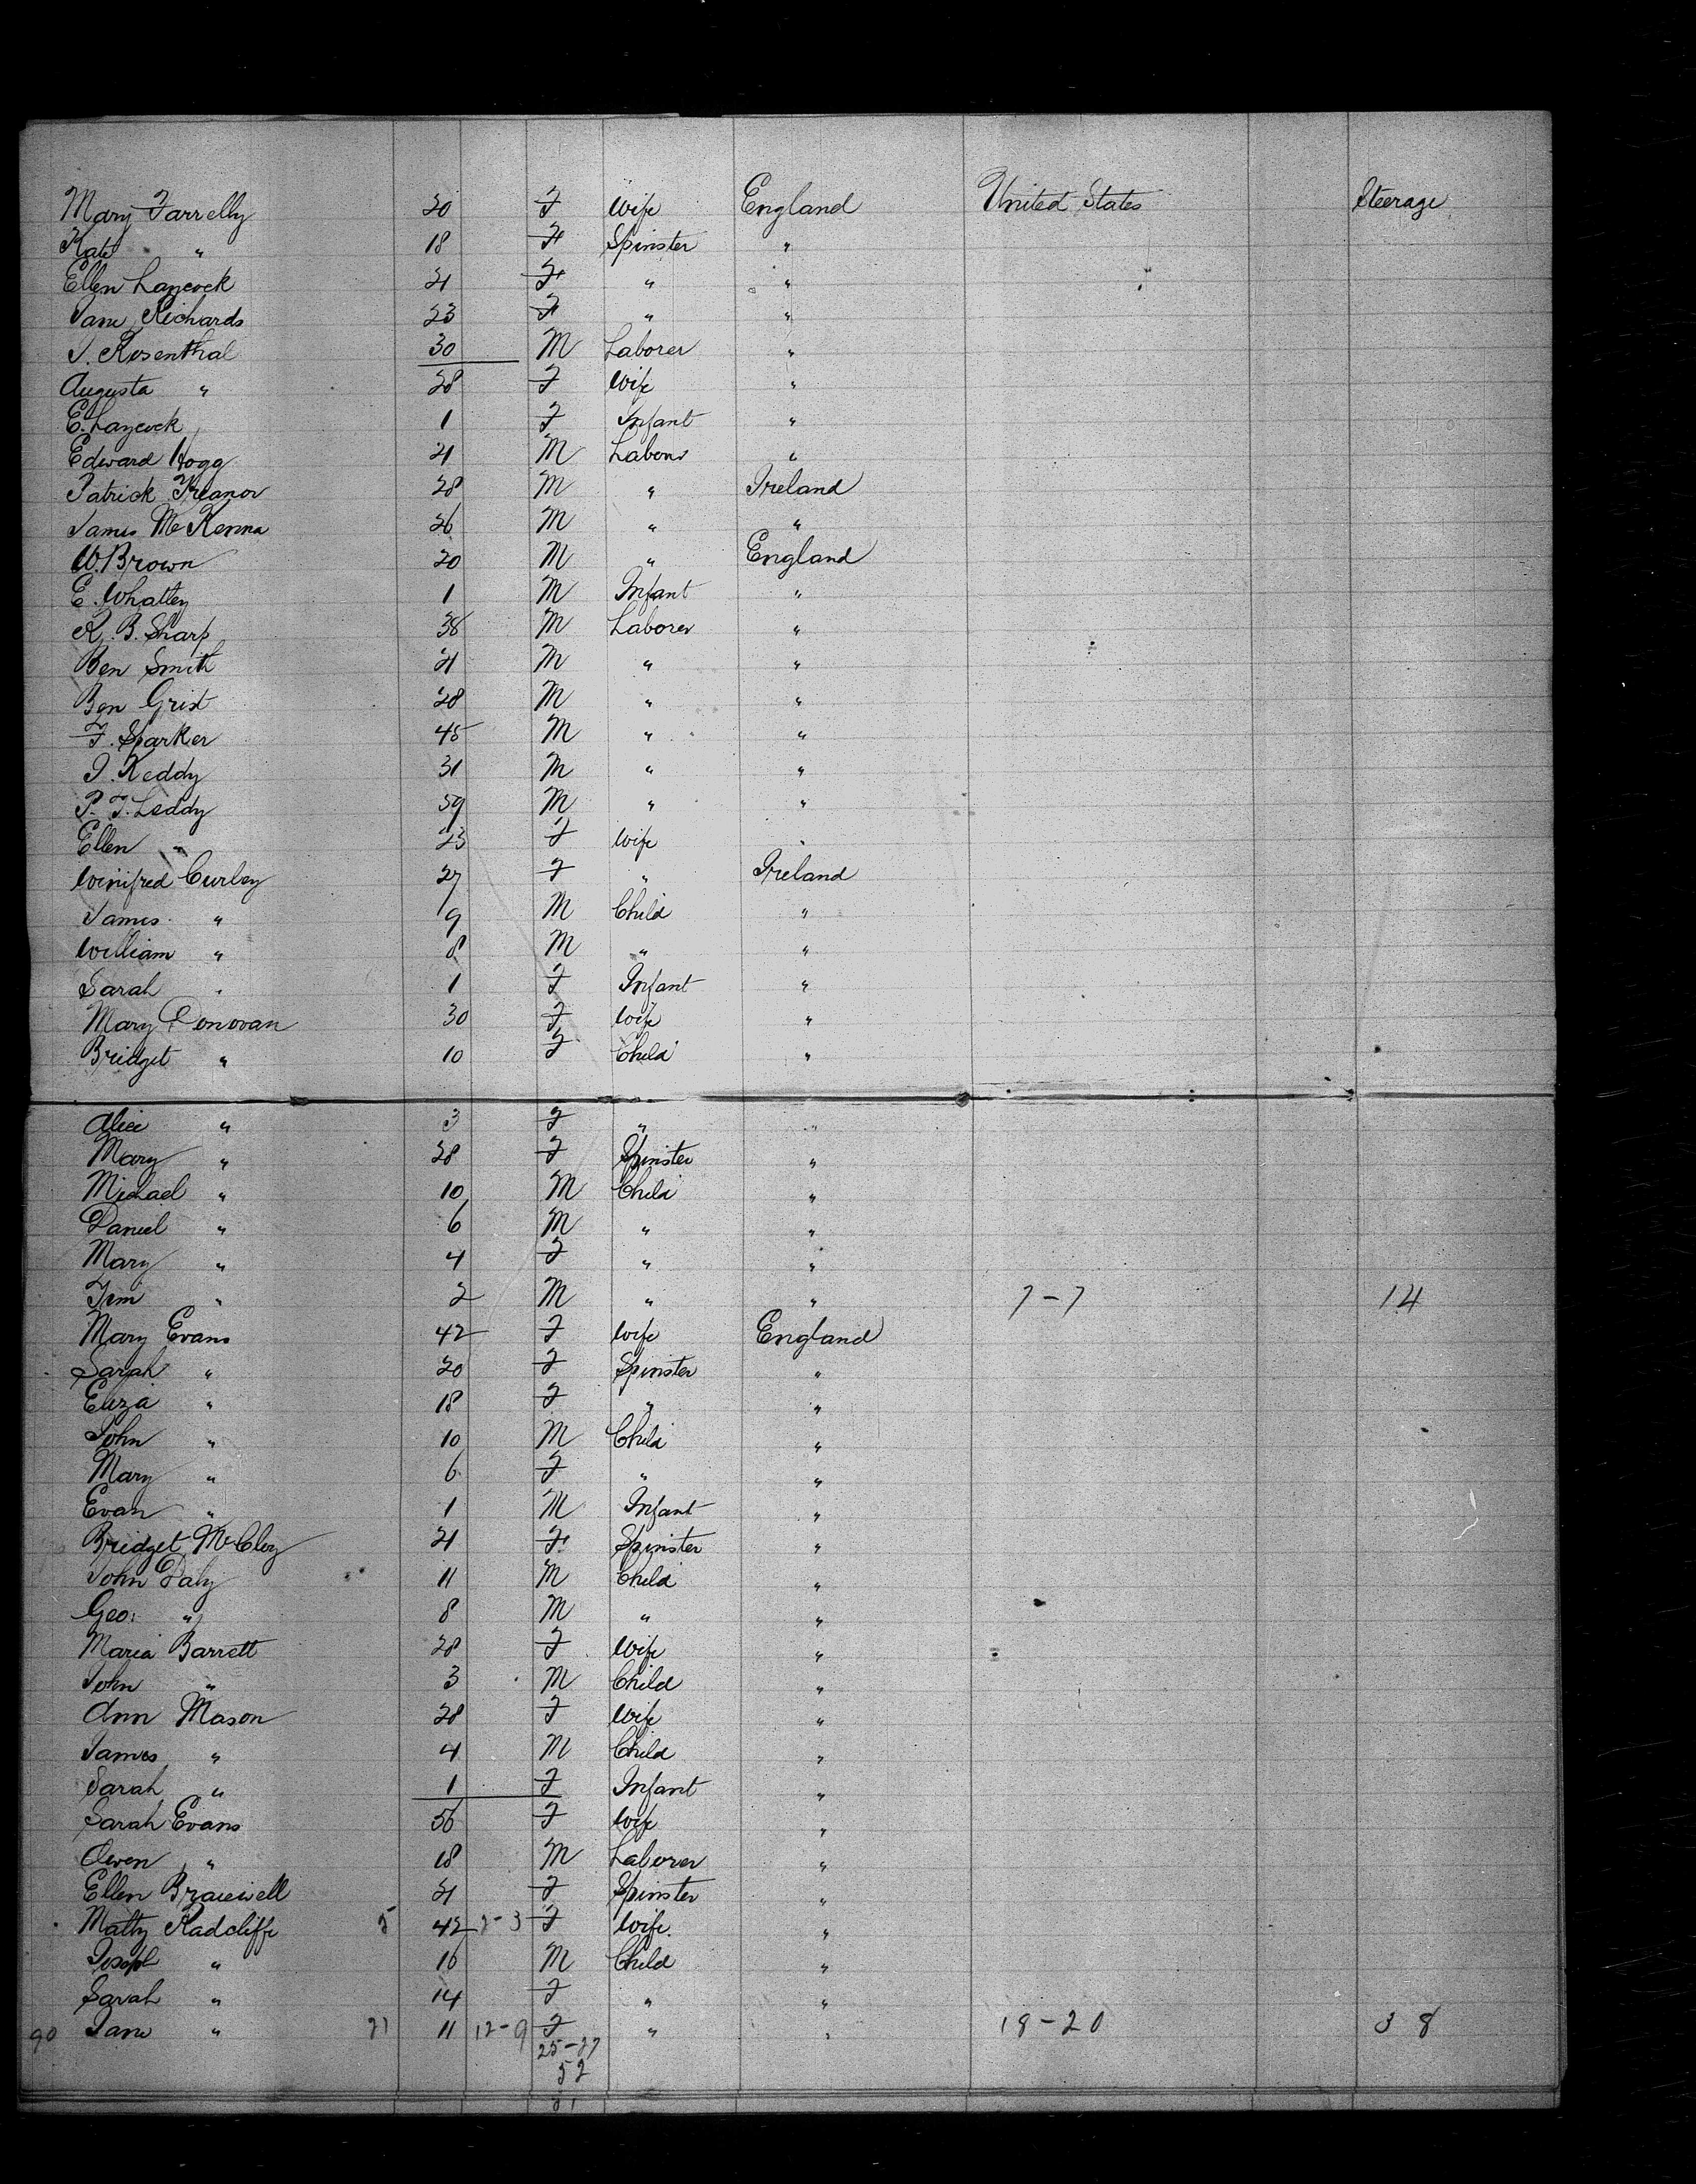 Mary Farrelly 20 F Wife England United States Steerage
Kate " 18 F Spinster "
Ellen Laycock 21 F " "
Jane Richards 23 F " "
J. Rosenthal 30 M Laborer "
Augusta " 28 F Wife "
E. Laycock 1 F Infant "
Edward Hogg 21 M Laborer "
Patrick Treanor 28 M " Ireland
James McKenna 26 M " "
W. Brown 20 M " England
E. Whatley 1 M Infant "
R. B. Sharp 38 M Laborer "
Ben Smith 21 M " "
Ben Grist 28 M " "
F. Sparker 45 M " "
J. Keddy 31 M " "
P. F. Leddy 59 M " "
Ellen " 23 F Wife "
Winifred Curley 27 F " Ireland
James " 9 M Child "
William " 8 M " "
Sarah " 1 F Infant "
Mary Donovan 30 F Wife "
Bridget " 10 F Child "
Alice " 3 F " "
Mary " 28 F Spinster "
Michael " 10 M Child "
Daniel " 6 M " "
Mary " 4 F " "
Tim " 2 M " " 7-7 14
Mary Evans 42 F Wife England
Sarah " 20 F Spinster "
Eliza " 18 F " "
John " 10 M Child "
Mary " 6 F " "
Evan " 1 M Infant "
Bridget McCloy 21 F Spinster "
John Daly 11 M Child "
Geo: " 8 M " "
Maria Barrett 28 F Wife "
John " 3 M Child "
Ann Mason 28 F Wife "
James " 4 M Child "
Sarah " 1 F Infant "
Sarah Evans 56 F Wife "
Owen " 18 M Laborer "
Ellen Bracewell 21 F Spinster "
Matty Radcliffe 5 42 2-3 F Wife "
Joseph " 16 M Child "
Sarah " 14 F " "
90 Jane " 21 11 12-9 F " " 18-20 38
25-27
52